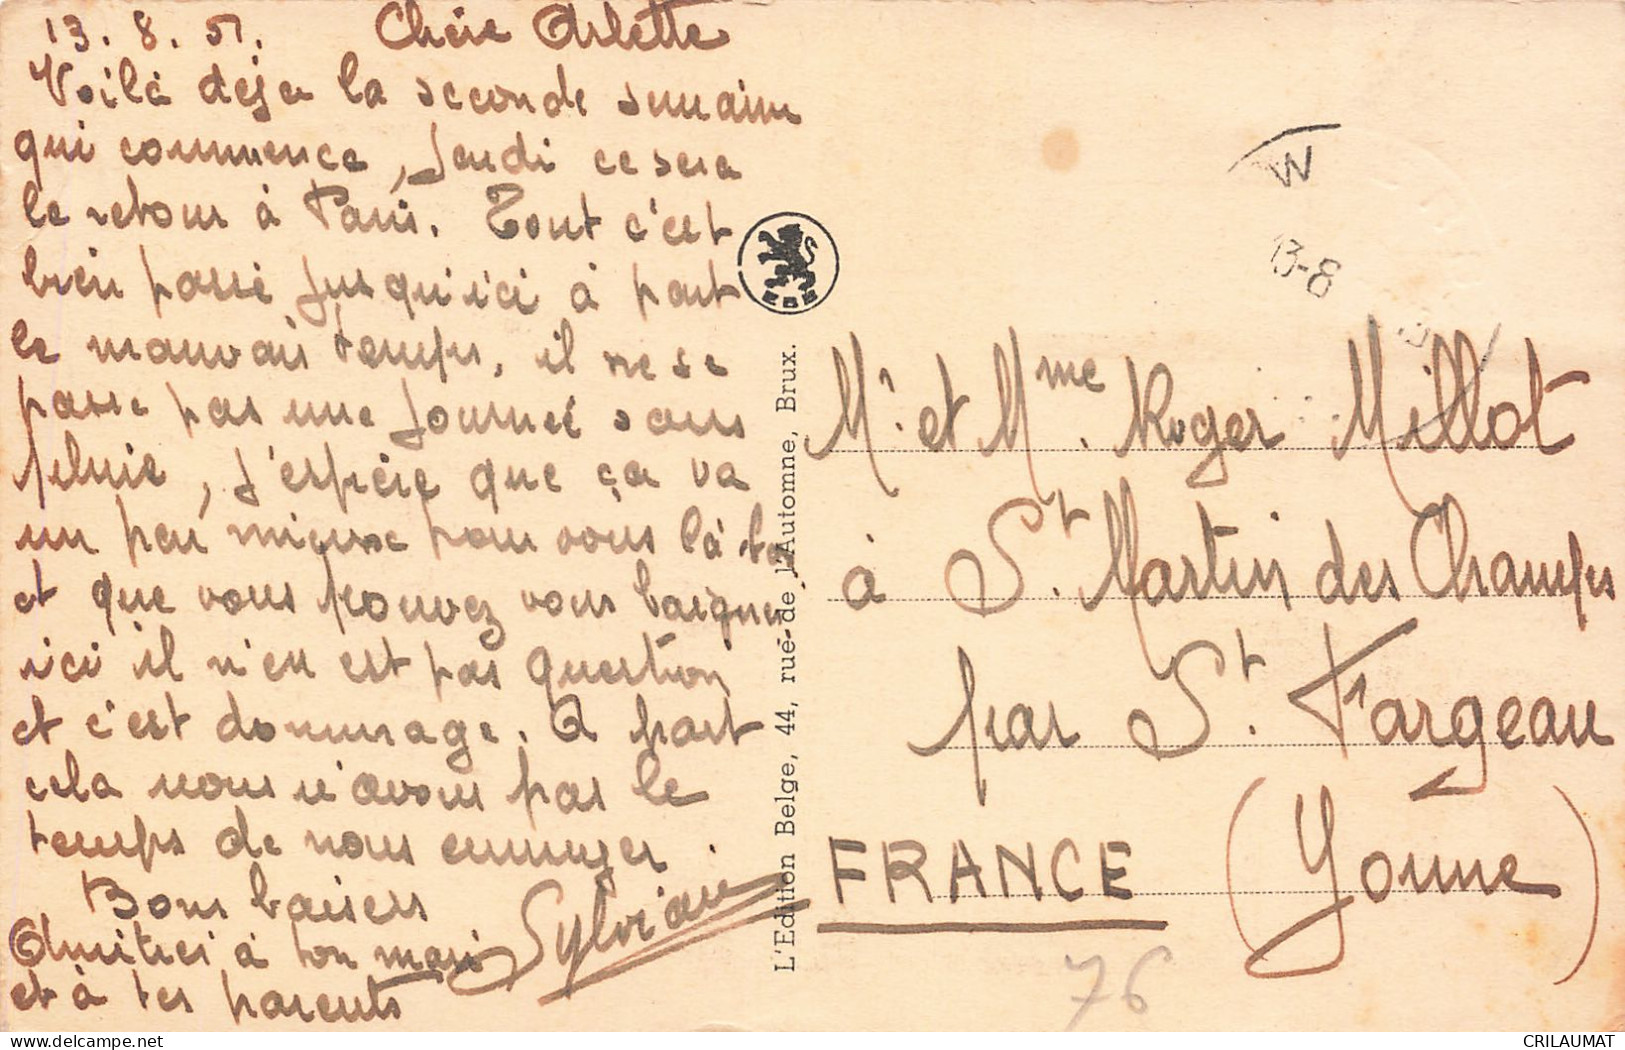 13. 8. 51. Chère Arlette
Voilà déja la seconde semaine
qui commence, Jeudi ce sera
le retour à Paris. Tout c'est
bien passé jusqu'ici à part
le mauvais temps, il ne se
passe pas une journée sans
pluie, j'espère que ça va
un peu mieux pour vous là bas
et que vous pouvez vous baigner
ici il n'en est pas question
et c'est dommage. A part
cela nous n'avons pas le
temps de nous ennuyer.
Bons baisers
Sylviane
Amitiés à ton mari
et à tes parents
L'Edition Belge, 44, rue de l'Automne, Brux.
W
13-8
Mr. et Mme. Roger Millot
à St. Martin des Champs
par St. Fargeau
FRANCE (Yonne)
76
CRILAUMAT